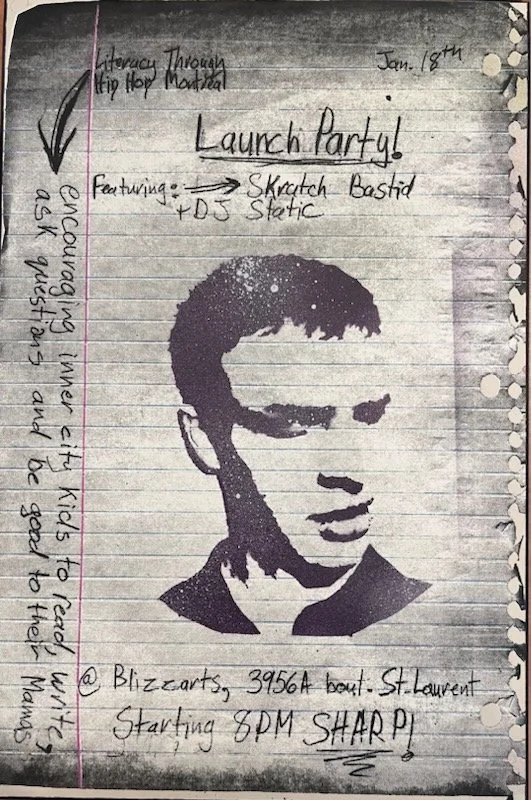 Literacy Through
Hip Hop Montréal
Jan. 18th
Launch Party!
Featuring: → Skratch Bastid
+ DJ Static
encouraging inner city kids to read, write,
ask questions and be good to their Mamas
@ Blizzarts, 3956A boul. St. Laurent
Starting 8PM SHARP!